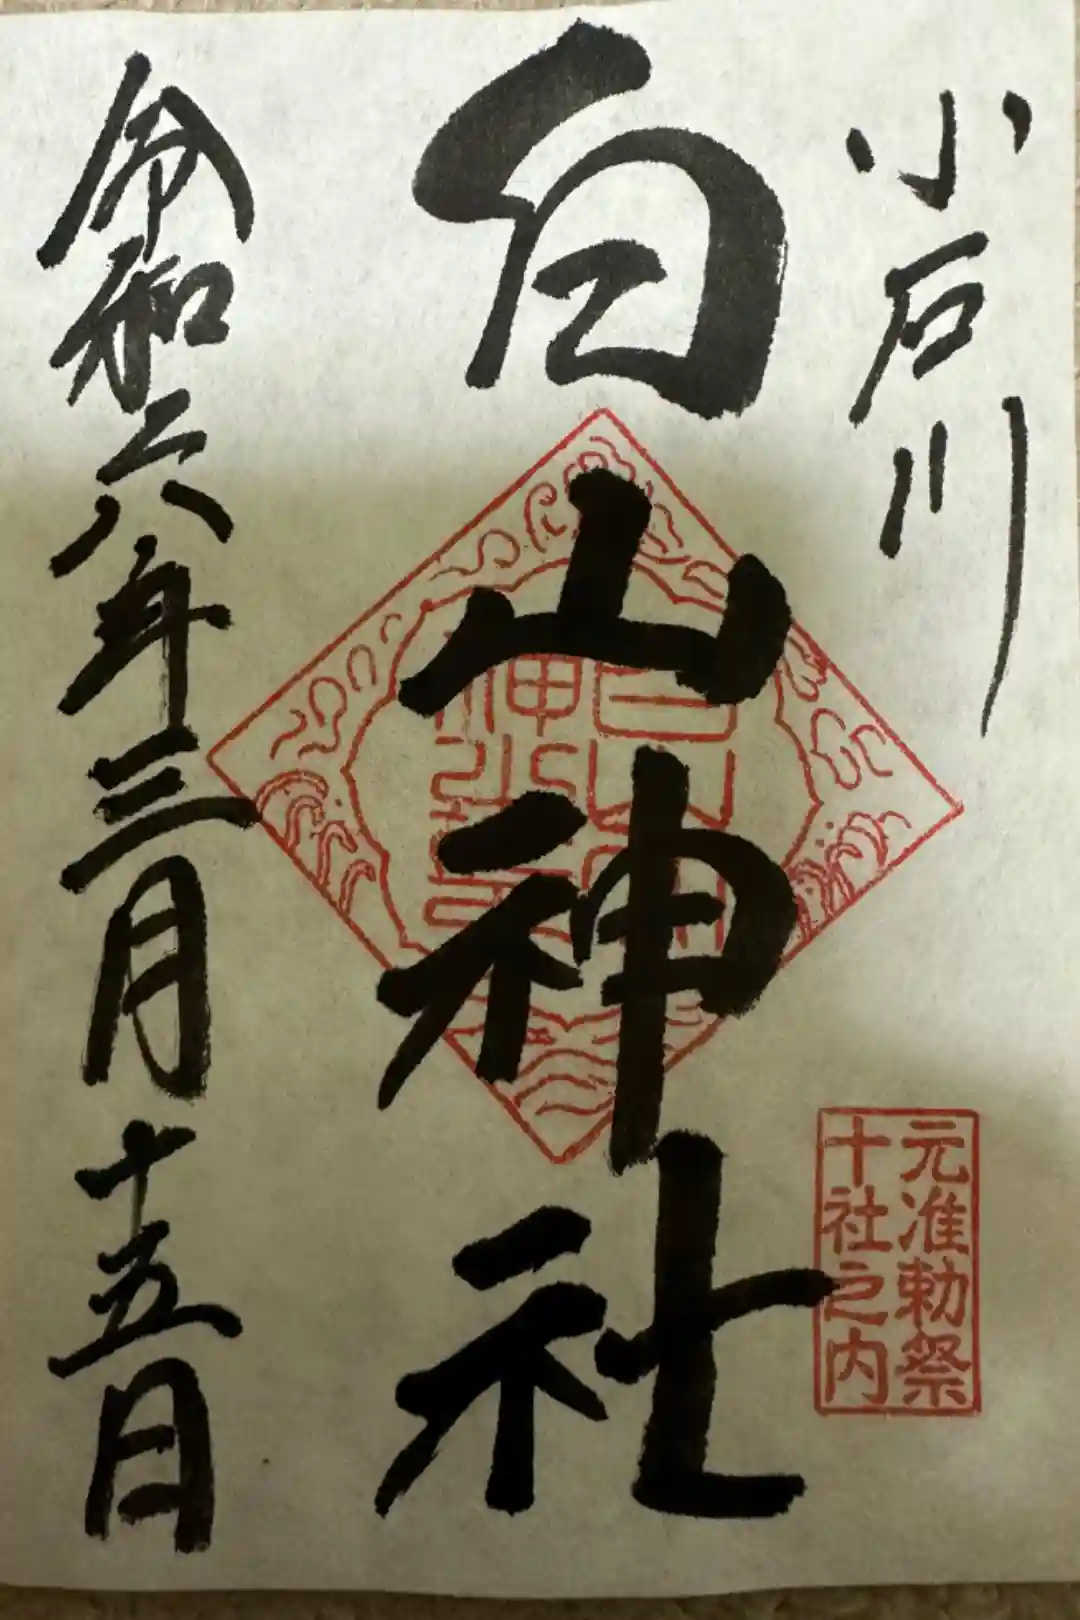 小石川
白山神社
元准勅祭
十社之内
令和六年三月十五日